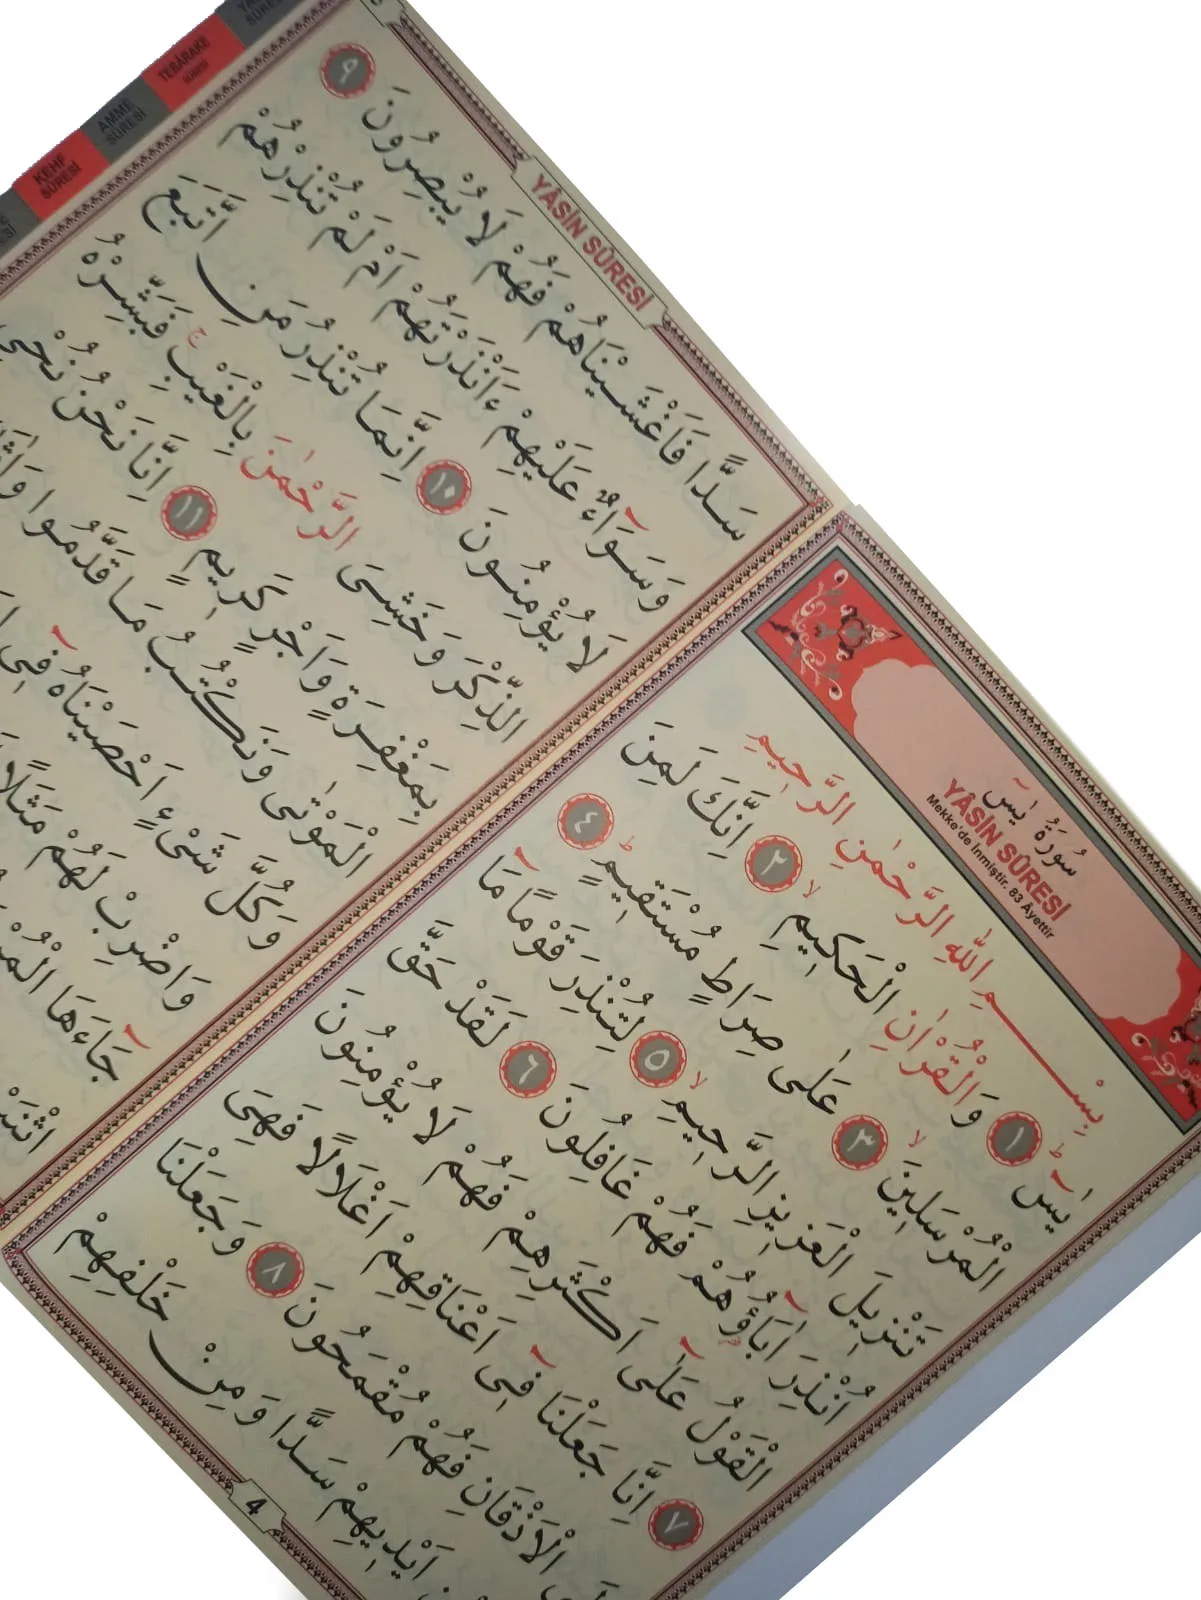 سُورَةُ يٰسٓ
YÂSİN SÛRESİ
Mekke'de İnmiştir. 83 Âyettir
بِسْمِ اللّٰهِ الرَّحْمٰنِ الرَّحِيمِ
يٰسٓ ﴿١﴾ وَالْقُرْاٰنِ الْحَكِيمِ ﴿٢﴾ اِنَّكَ لَمِنَ
الْمُرْسَلِينَ ﴿٣﴾ عَلٰى صِرَاطٍ مُسْتَقِيمٍ ﴿٤﴾
تَنْزِيلَ الْعَزِيزِ الرَّحِيمِ ﴿٥﴾ لِتُنْذِرَ قَوْمًا مَا
اُنْذِرَ اٰبَاؤُهُمْ فَهُمْ غَافِلُونَ ﴿٦﴾ لَقَدْ حَقَّ
الْقَوْلُ عَلٰٓى اَكْثَرِهِمْ فَهُمْ لَا يُؤْمِنُونَ
﴿٧﴾ اِنَّا جَعَلْنَا فِٓى اَعْنَاقِهِمْ اَغْلَالًا فَهِىَ
الْاَذْقَانِ فَهُمْ مُقْمَحُونَ ﴿٨﴾ وَجَعَلْنَا
اَيْدِيهِمْ سَدًّا وَمِنْ خَلْفِهِمْ
4
YÂSİN SÛRESİ
سَدًّا فَاَغْشَيْنَاهُمْ فَهُمْ لَا يُبْصِرُونَ ﴿٩﴾
وَسَوَٓاءٌ عَلَيْهِمْ ءَاَنْذَرْتَهُمْ اَمْ لَمْ تُنْذِرْهُمْ
لَا يُؤْمِنُونَ ﴿١٠﴾ اِنَّمَا تُنْذِرُ مَنِ اتَّبَعَ
الذِّكْرَ وَخَشِىَ الرَّحْمٰنَ بِالْغَيْبِ فَبَشِّرْهُ
بِمَغْفِرَةٍ وَاَجْرٍ كَرِيمٍ ﴿١١﴾ اِنَّا نَحْنُ نُحْيِ
الْمَوْتٰى وَنَكْتُبُ مَا قَدَّمُوا
وَكُلَّ شَىْءٍ اَحْصَيْنَاهُ فِٓى
وَاضْرِبْ لَهُمْ مَثَلًا
جَاءَهَا
TEBÂRAKE SÛRESİ
AMME SÛRESİ
KEHF SÛRESİ